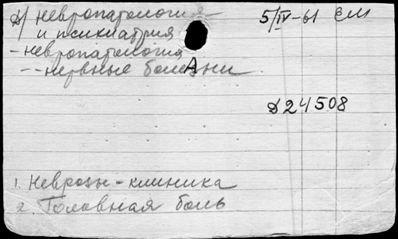 д) невропатология 5/IV-61 ЕМ
и психиатрия
- невропатология
-- нервные болезни
Д24508
1. Неврозы - клиника
2. Головная боль